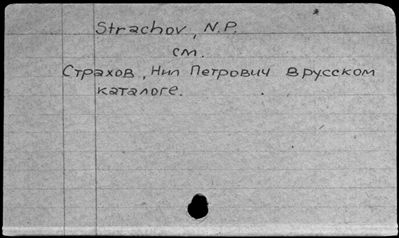 Strachov, N.P.
см.
Страхов, Нил Петрович в русском
каталоге.